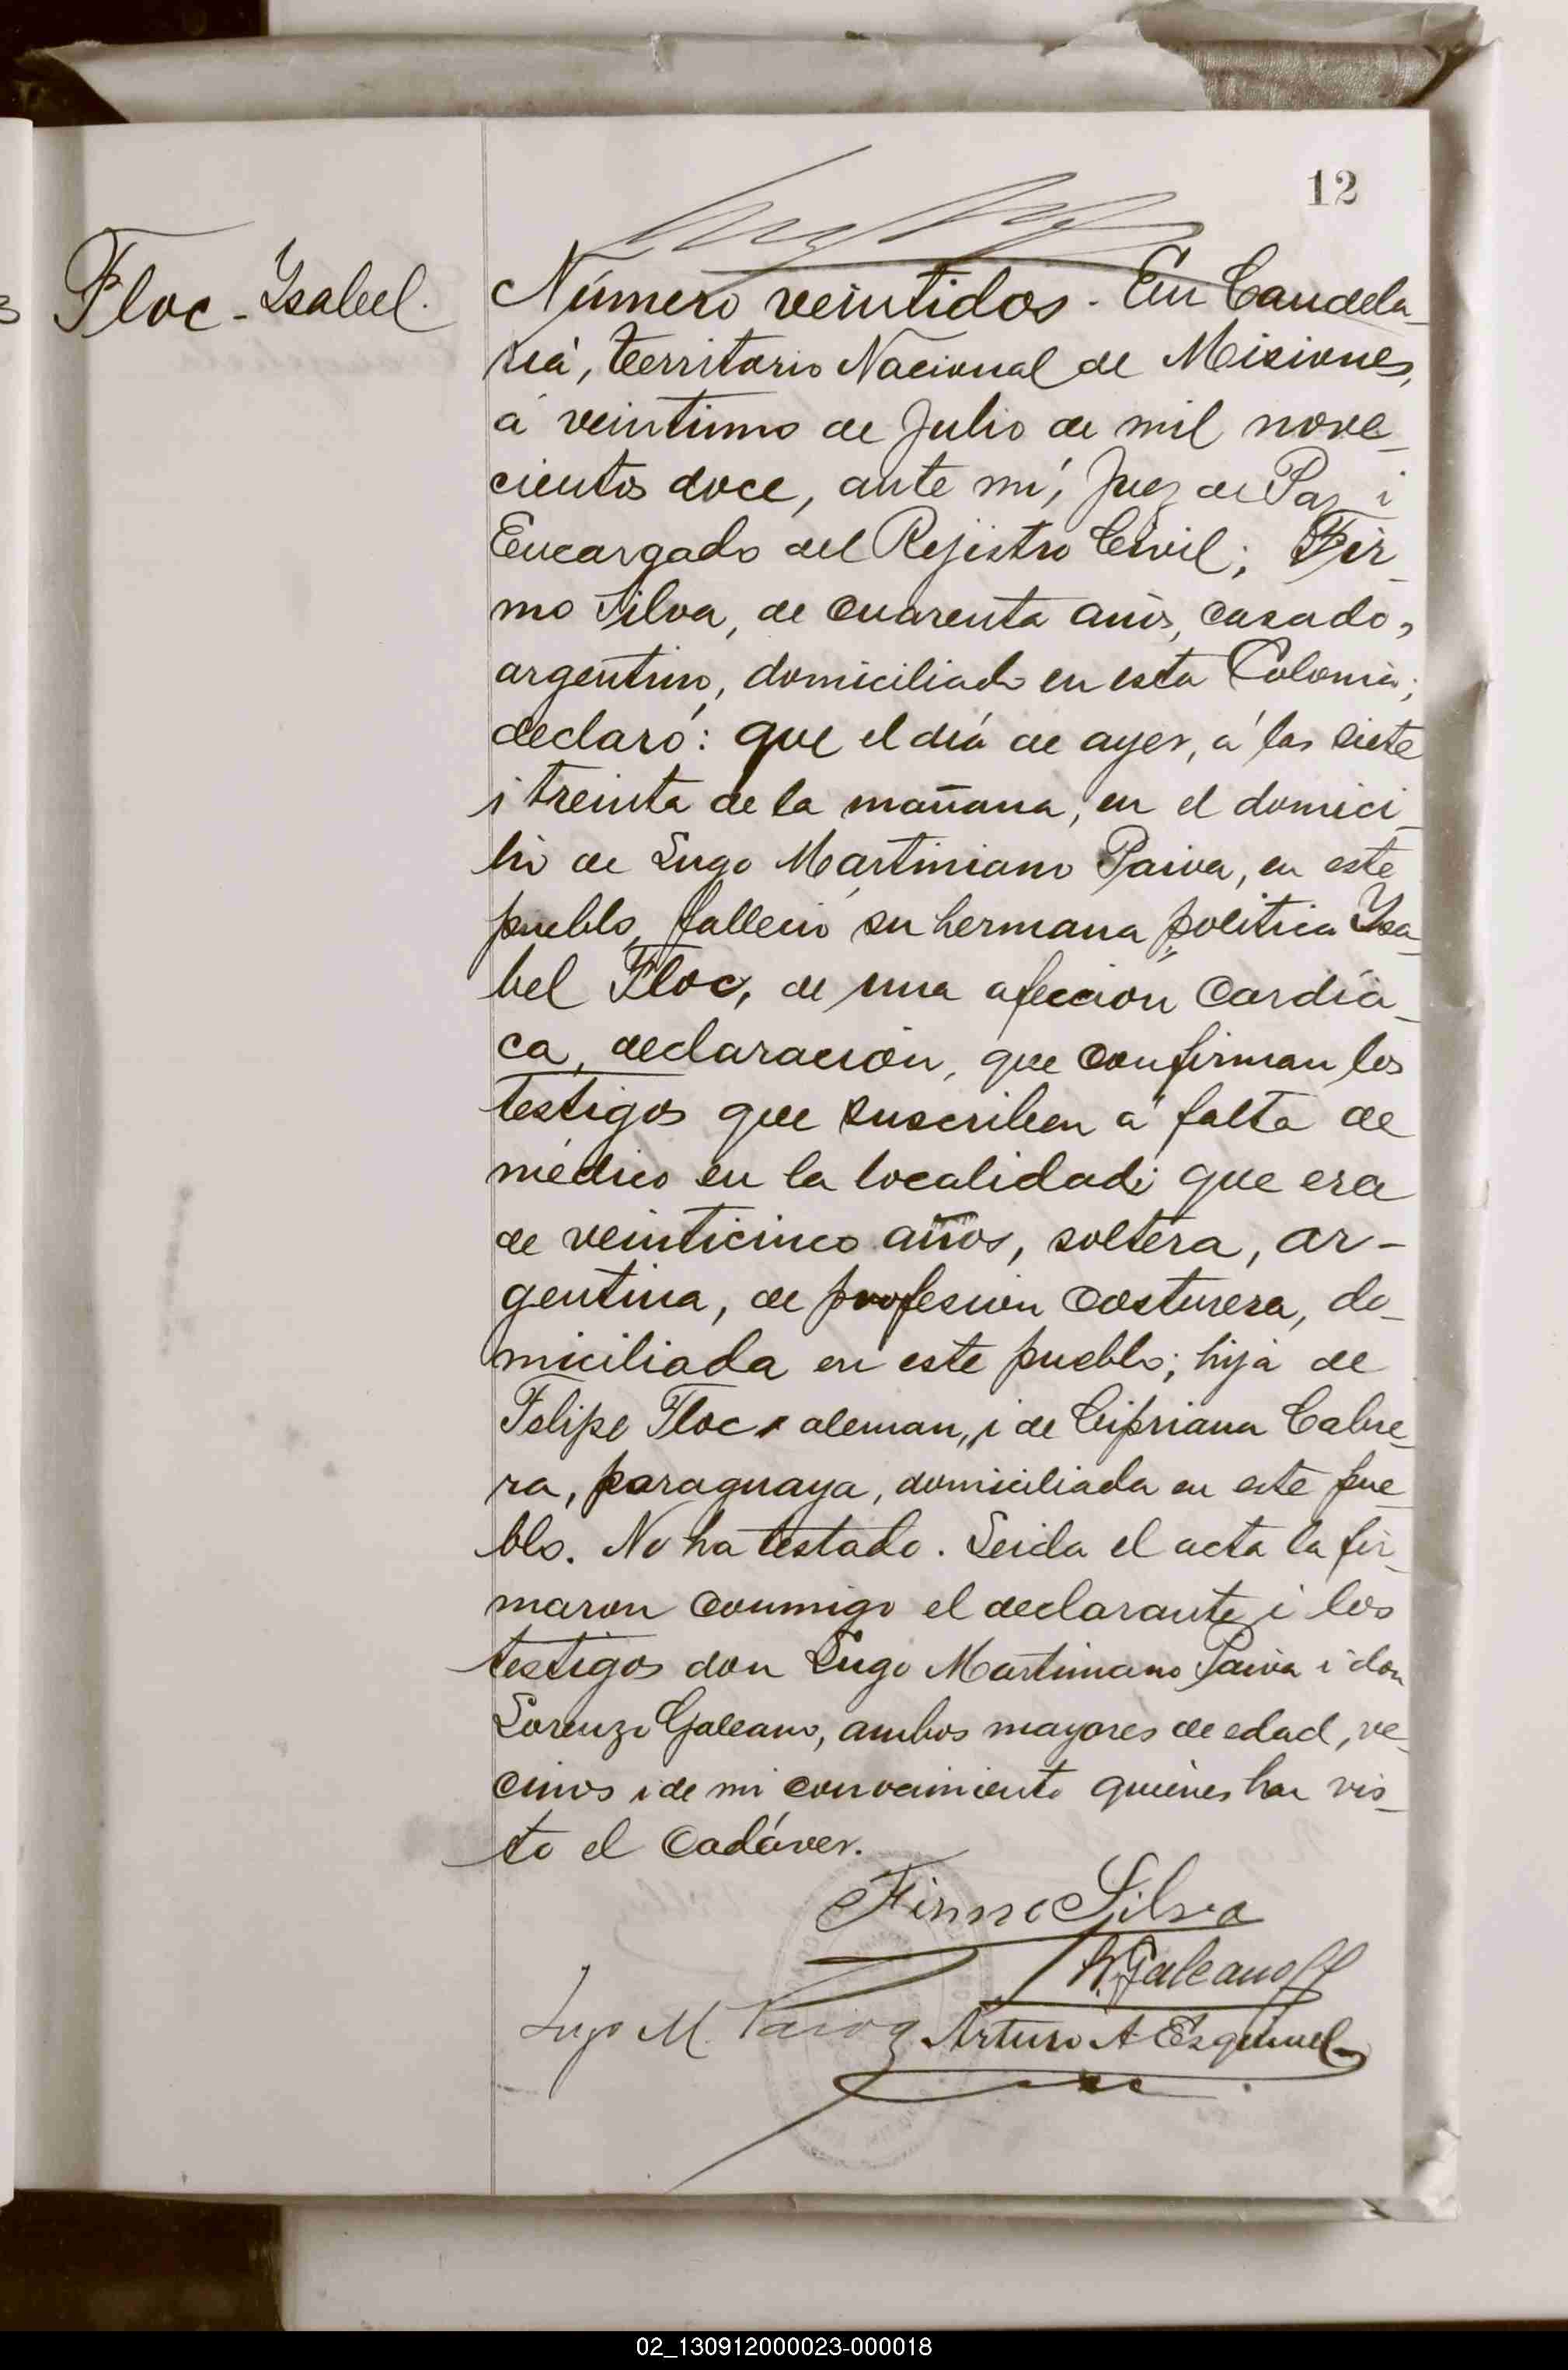 12
Floc - Ysabel.
Número veintidos. En Candela-
ria, territorio Nacional de Misiones,
á veintiuno de Julio de mil nove-
cientos doce, ante mí, Juez de Paz i
Encargado del Rejistro Civil; Fir-
mo Silva, de cuarenta años, casado,
argentino, domiciliado en esta Colonia;
declaró: que el día de ayer, á las siete
i treinta de la mañana, en el domici-
lio de Lugo Martiniano Paiva, en este
pueblo, falleció su hermana politica Ysa-
bel Floc, de una afección cardía-
ca, declaración, que confirman los
testigos que suscriben á falta de
médico en la localidad; que era
de veinticinco años, soltera, ar-
gentina, de profesión costurera, do-
miciliada en este pueblo; hija de
Felipe Floc, aleman, i de Cipriana Cabre-
ra, paraguaya, domiciliada en este pue-
blo. No ha testado. Leida el acta la fir-
maron conmigo el declarante i los
testigos don Lugo Martiniano Paiva i don
Lorenzo Galeano, ambos mayores de edad, ve-
cinos i de mi conocimiento quienes han vis-
to el cadáver.
Firmo Silva
Galeano
Lugo M. Paiva Arturo A Esquivel
02_130912000023-000018